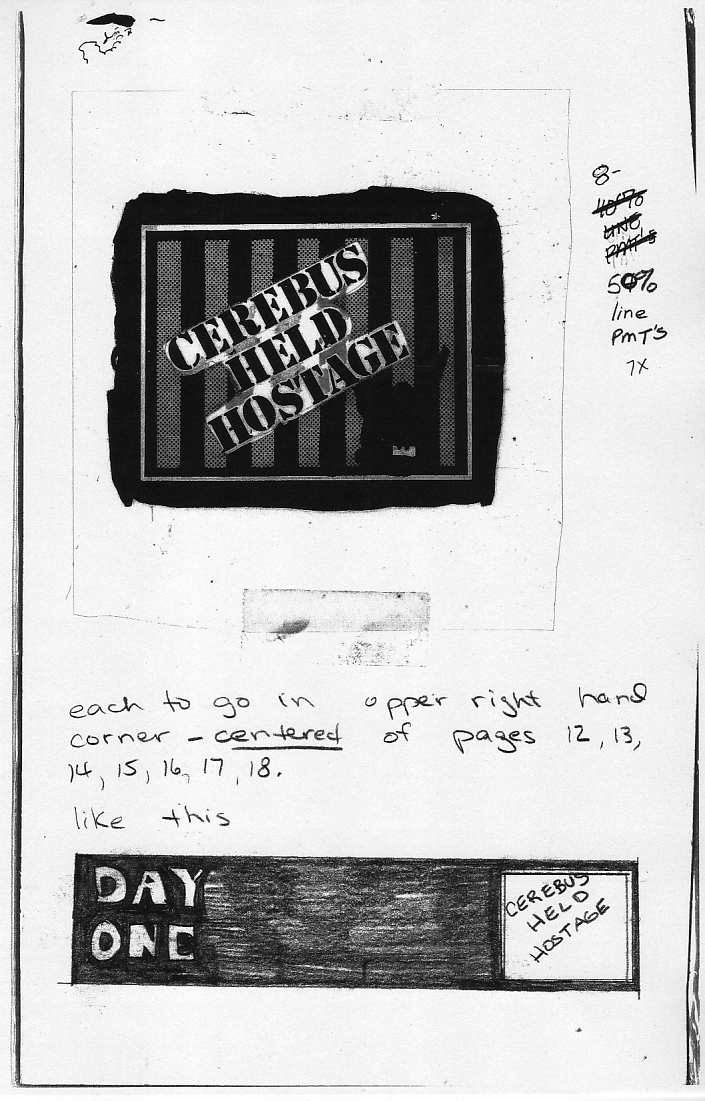 CEREBUS
HELD
HOSTAGE
8-
40%
LINE
PMT'S
50%
line
PMT'S
7x
each to go in upper right hand
corner - centered of pages 12, 13,
14, 15, 16, 17, 18.
like this
DAY
ONE
CEREBUS
HELD
HOSTAGE